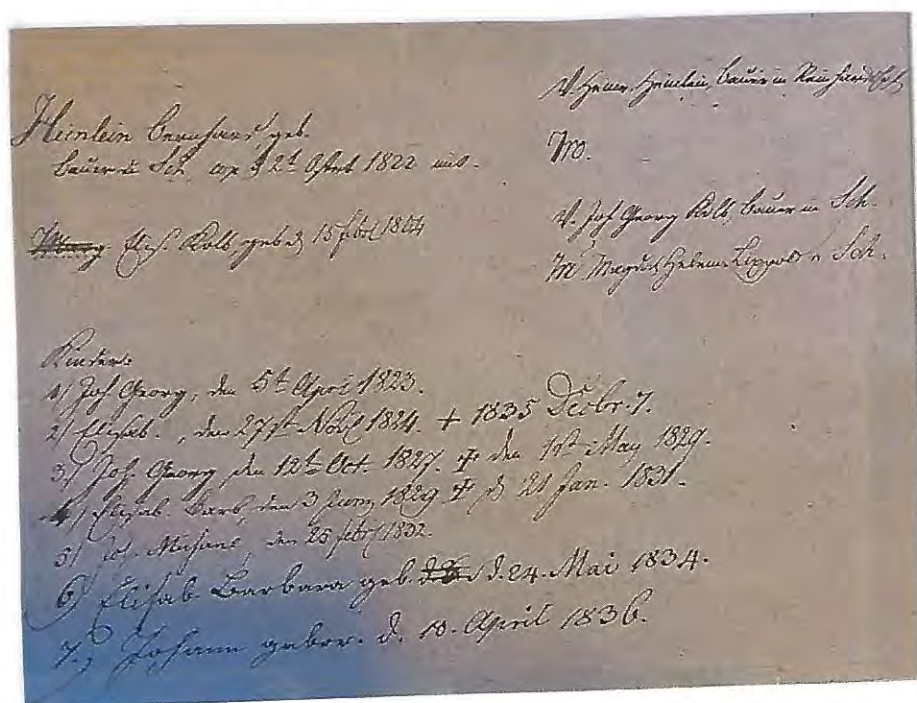 Heinlein Bernhard, geb.
Bauer in Sch, cop d 2t Ofebr 1822 mit
Elis. Kolb, geb. d 15 febr 1804
V. Heinr. Heinlein, Bauer in
Mo.
V. Joh Georg Kolb, Bauer in Sch.
M Magd. Helena Lippold v Sch.
Kinder:
1/ Joh Georg, den 5t April 1823.
2/ Elisab., den 27st Nov 1824. + 1835 Decbr. 7.
3/ Joh. Georg den 12t Oct. 1827. + den May 1829.
4/ Elisab. Barb, den 3 Juny 1829 + d 21 Jan. 1831.
5/ Joh. Michael, den 25 febr 1832.
6) Elisab. Barbara geb. d. 24. Mai 1834.
7.) Johann gebor. d. 10. April 1836.